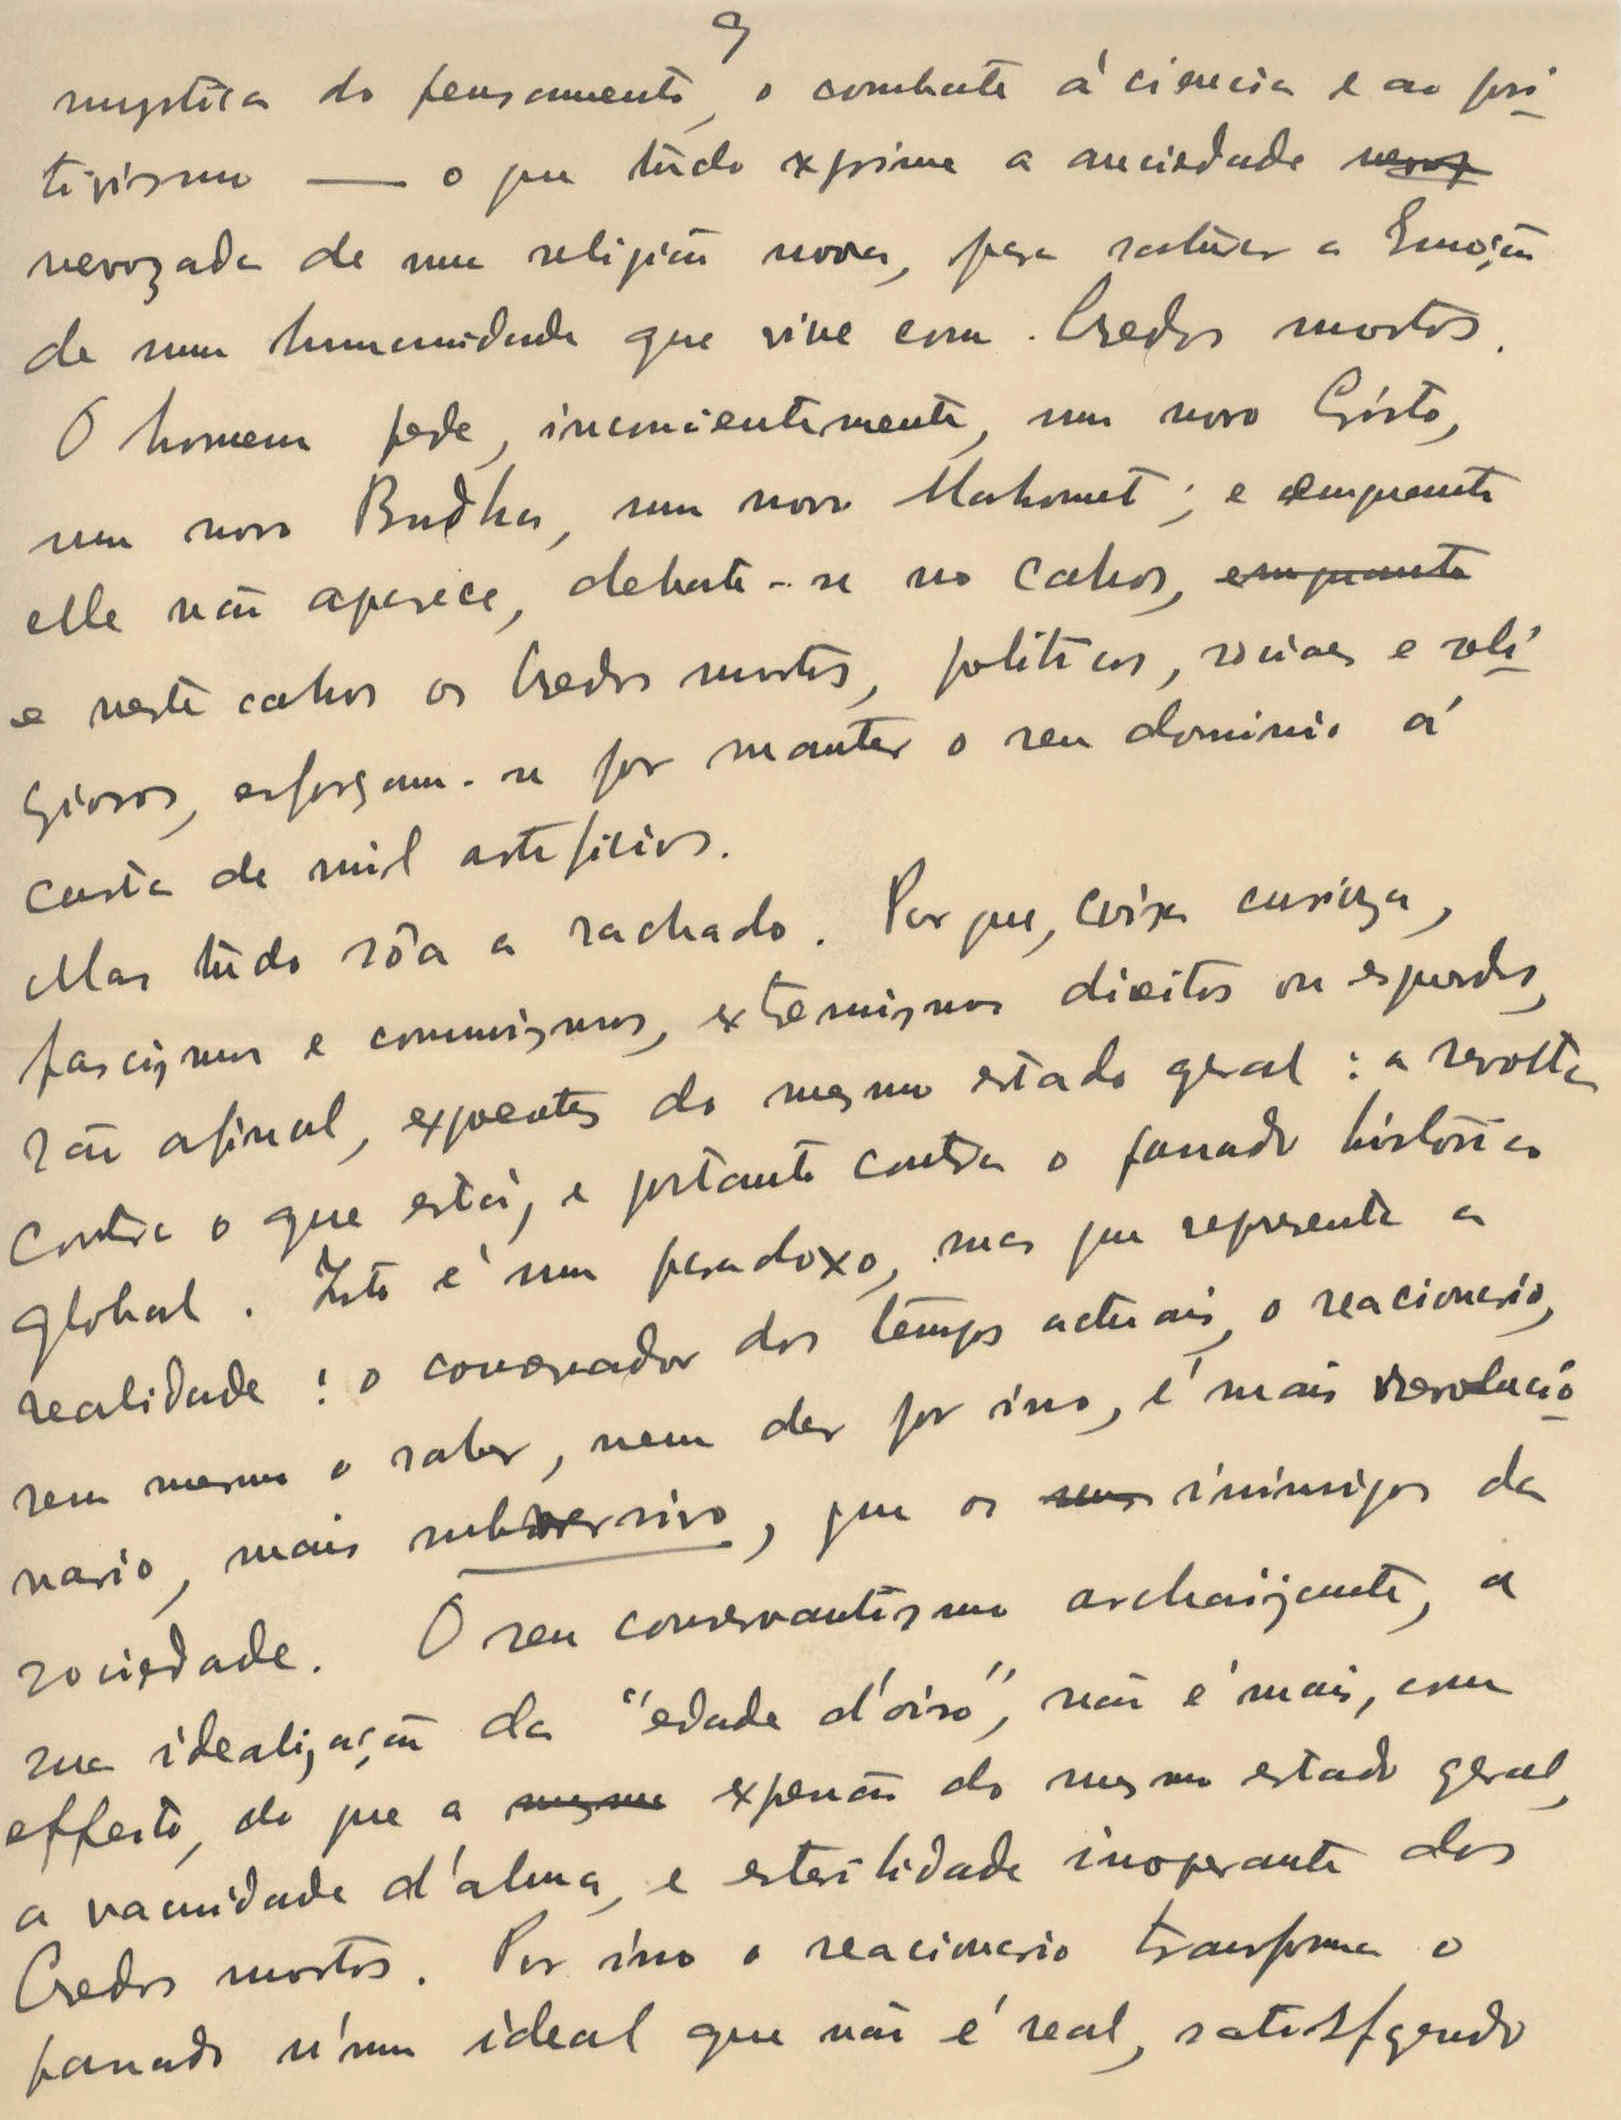 9
mystica do pensamento, o combate á ciencia e ao posi-
tivismo — o que tudo exprime a anciedade
nevrozada de uma religião nova, para saturar a Emoção
de uma humanidade que vive com Credos mortos.
O homem pede, inconscientemente, um novo Cristo,
um novo Budha, um novo Mahomet; e emquanto
elle não aparece, debate-se no cahos, emquanto
e neste cahos os Credos mortos, politicos, sociaes e reli-
giosos, esforçam-se por manter o seu dominio á
custa de mil arteficios.
Mas tudo sôa a rachado. Por que, coisa curioza,
fascismos e communismos, extremismos direitos ou esquerdos,
são afinal, expoentes do mesmo estado geral: a revolta
contra o que está, e portanto contra o passado historico
global. Isto é um paradoxo, mas que representa a
realidade: o conservador dos tempos actuais, o reacionario,
sem mesmo o saber, nem dar por isso, é mais revolucio-
nario, mais subversivo, que os seus inimigos da
sociedade. O seu conservantismo archaizante, a
sua idealização da "edade d'oiro", não é mais, com
effeito, do que a mesma expressão do mesmo estado geral,
a vacuidade d'alma, e esterilidade inoperante dos
Credos mortos. Por isso o reacionario transforma o
passado n'um ideal que não é real, satisfazendo